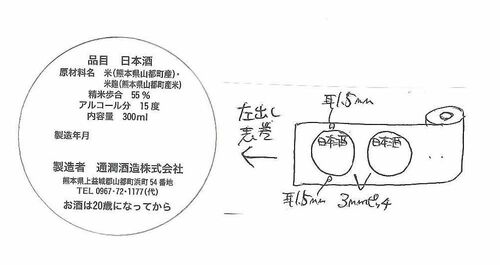 品目 日本酒
原材料名 米(熊本県山都町産)・
米麹(熊本県山都町産米)
精米歩合 55%
アルコール分 15度
内容量 300ml
製造年月
製造者 通潤酒造株式会社
熊本県上益城郡山都町浜町54番地
TEL 0967・72・1177(代)
お酒は20歳になってから
左出し
表巻
耳1.5mm
日本酒
日本酒
耳1.5mm
3mmピッチ